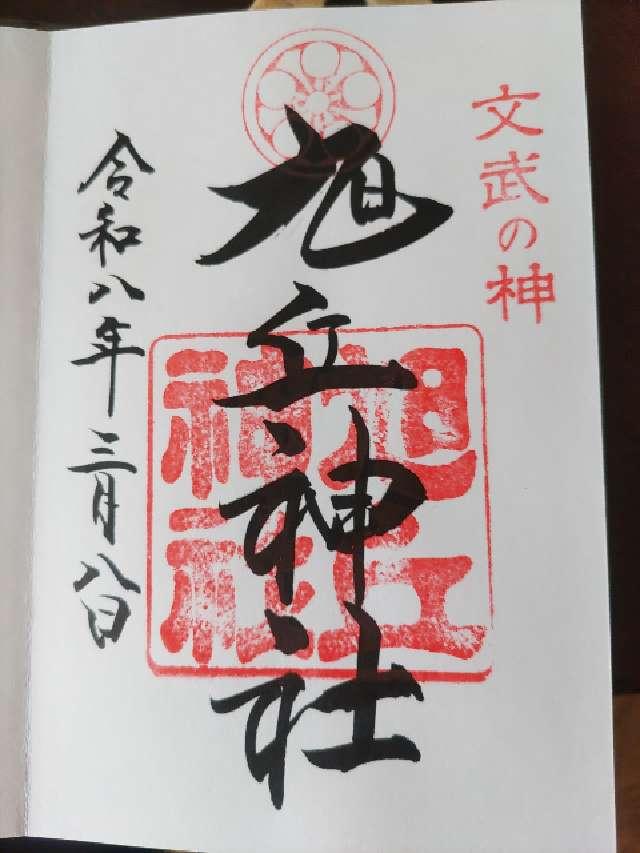 文武の神
旭丘神社
旭丘
神社
令和八年三月八日